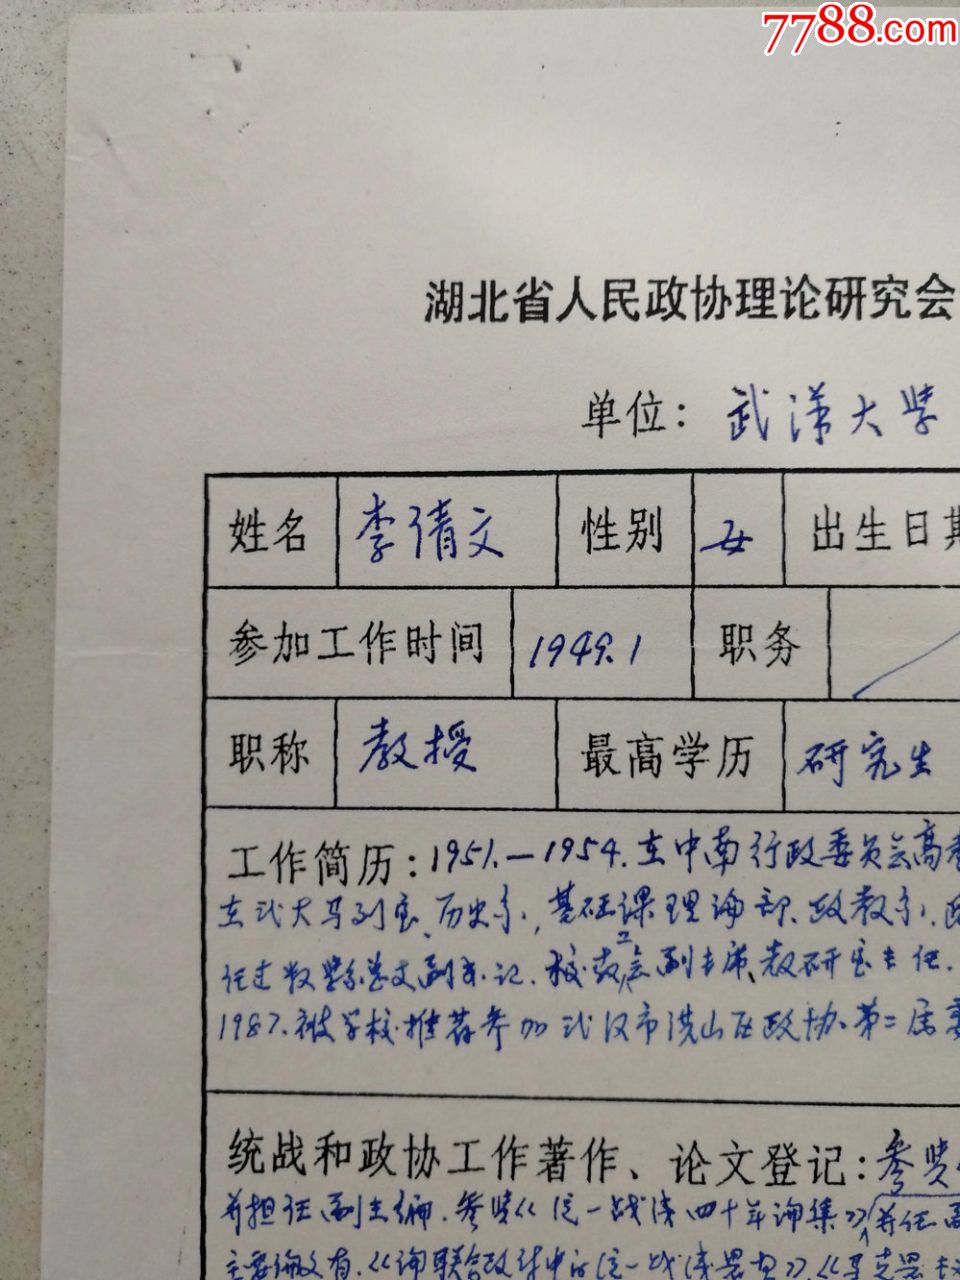 7788.com
湖北省人民政协理论研究会
单位：武汉大学
姓名 李倩文 性别 女 出生日期
参加工作时间 1949.1 职务
职称 教授 最高学历 研究生
工作简历：1951.—1954.在中南行政委员会高教
在武大马列室、历史系，基础课理论部、政教系，
任过数学系总支副书记，校教工会副主席、教研室主任．
1987.被学校推荐参加武汉市洪山区政协、第二届委
统战和政协工作著作、论文登记：参览
并担任副主编．参览《统一战线四十年论集》并任副
主要论文有．《论联合政府中的统一战线思想》．《马克思主义